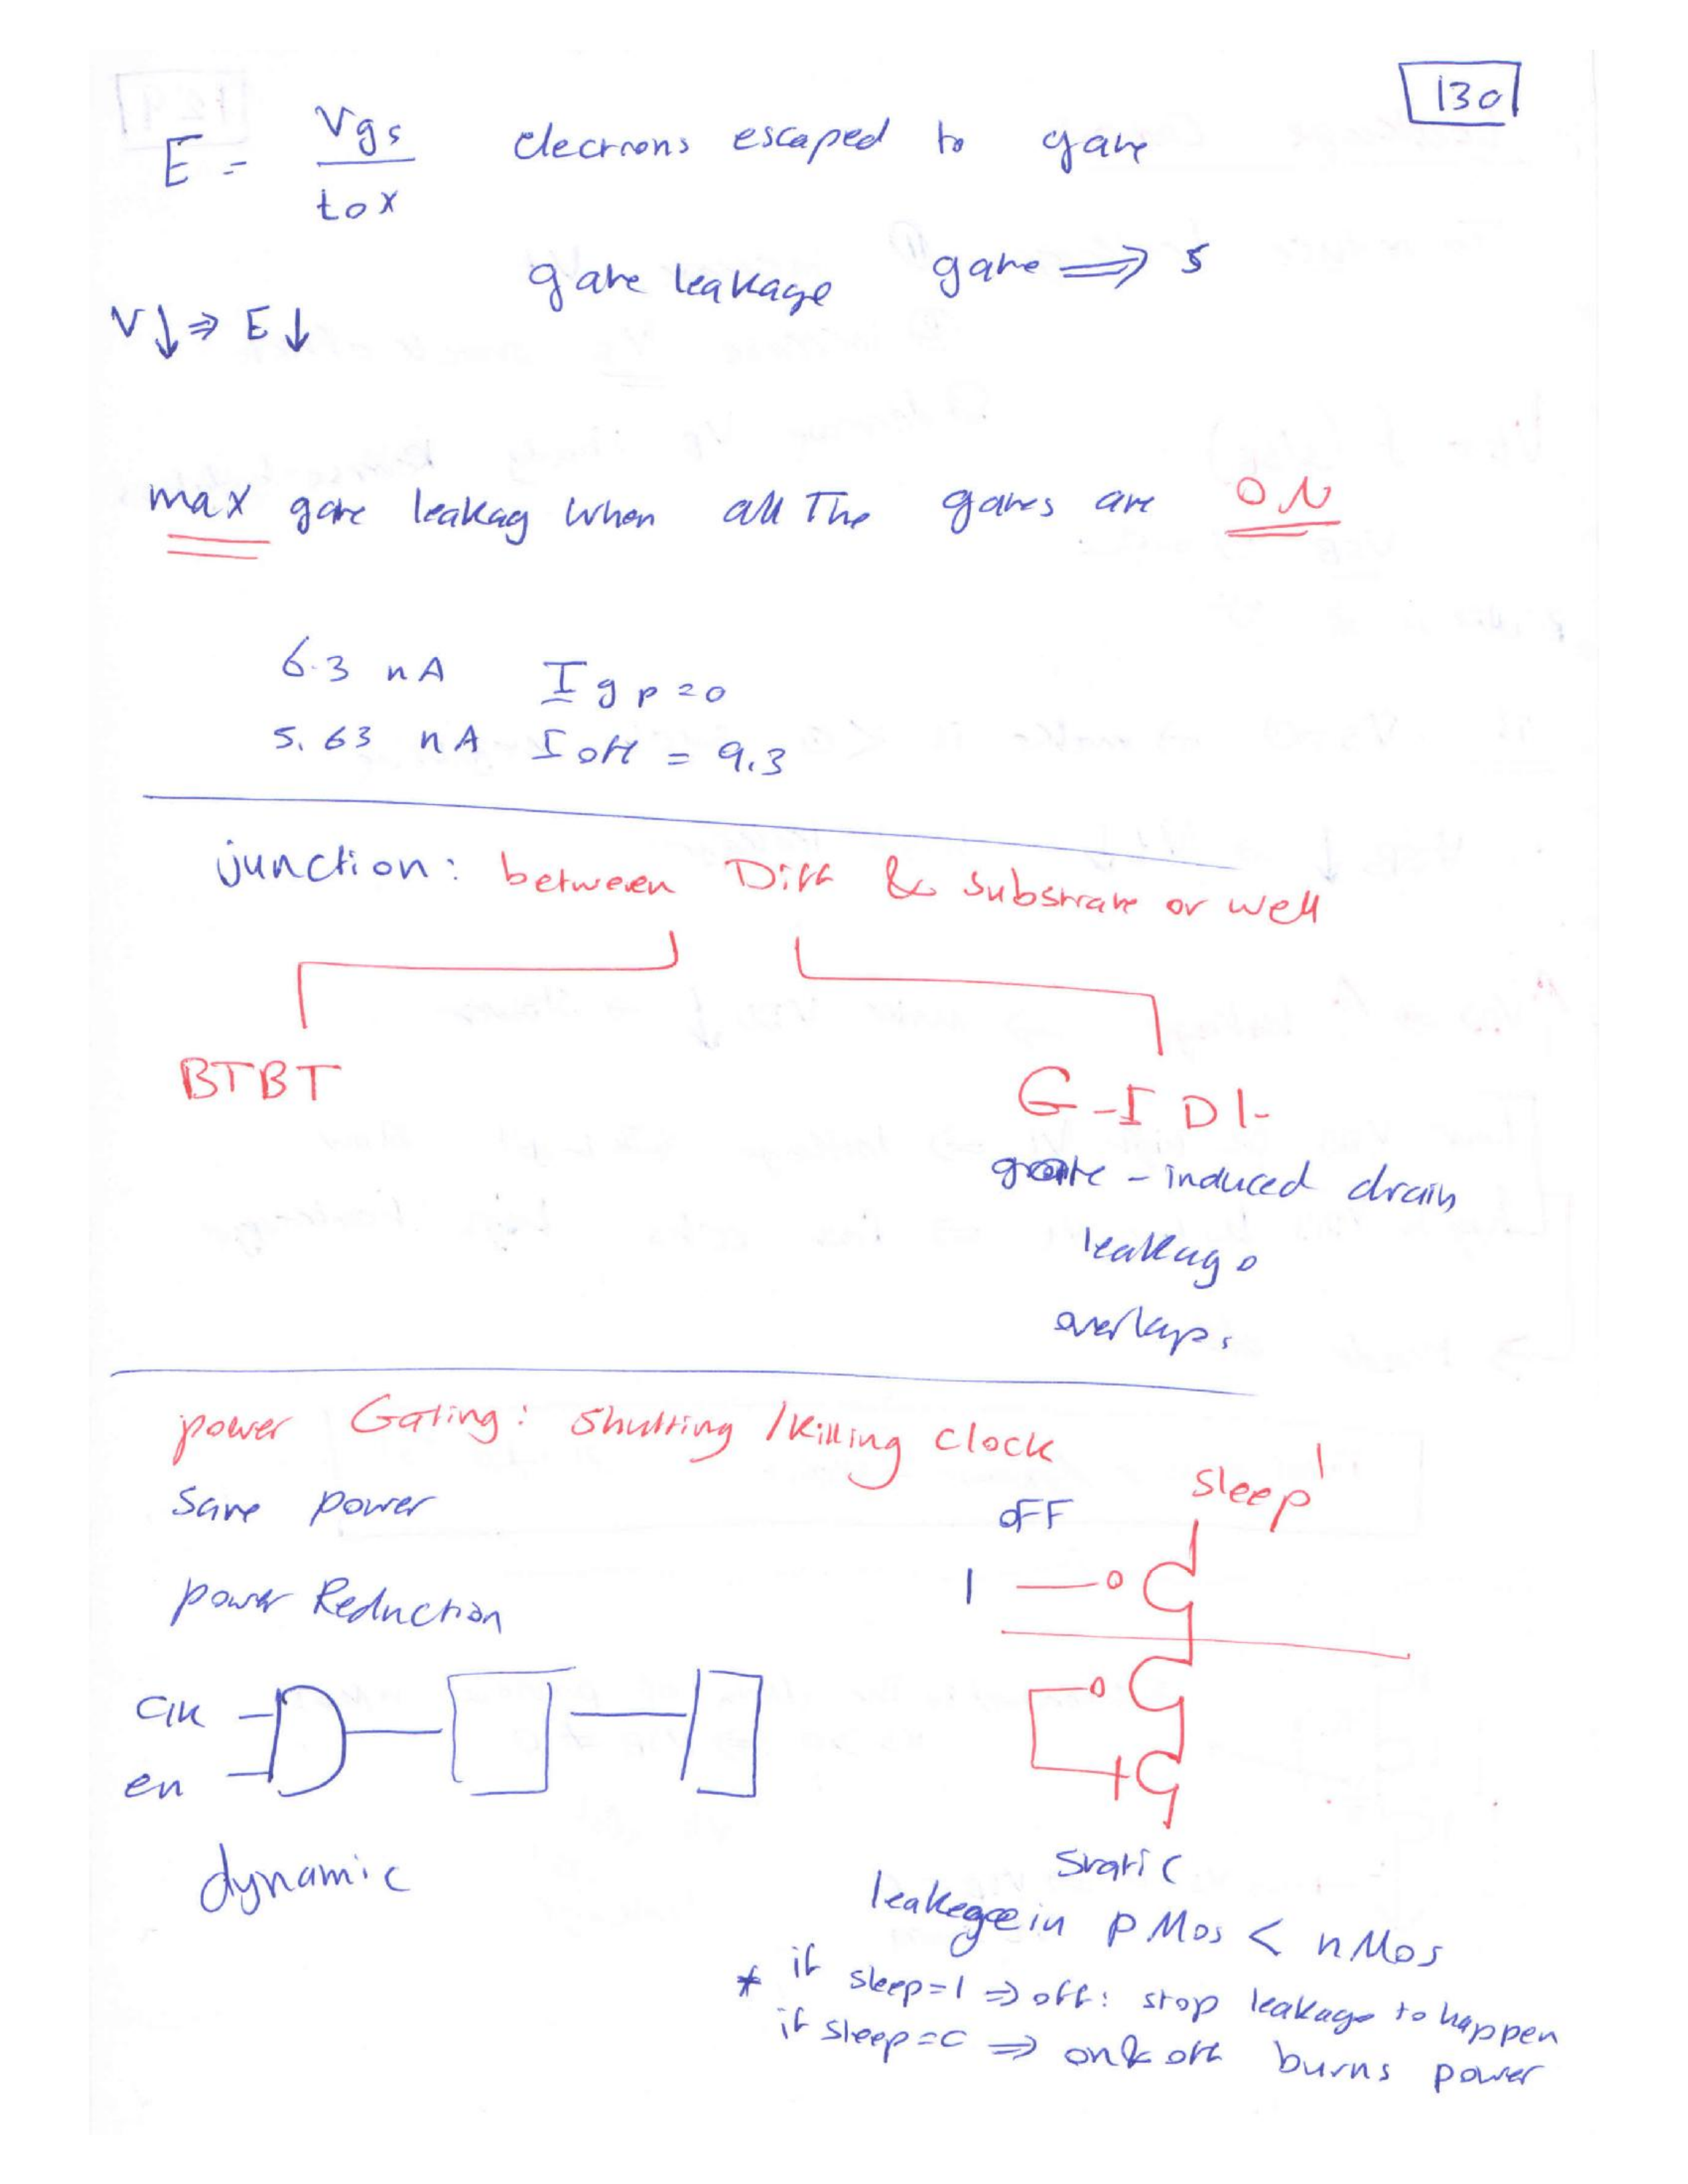 130
E = Vgs / tox elecrrons escaped to gate
gate leakage gate ⇒ s
V↓ ⇒ E↓
max gate leakag when all The gates are ON
6.3 nA Igp=0
5.63 nA Ioff = 9.3
junction: between Diff & substrate or well
BTBT
GIDL
gate - induced drain
leakage
overlaps.
power Gating: shutting /killing clock
save power
OFF
sleep 1
power Reduction
1
Clk
en
dynamic
static
leakage in pMos < nMos
* if sleep=1 ⇒ off: stop leakage to happen
if sleep=0 ⇒ on & off burns power